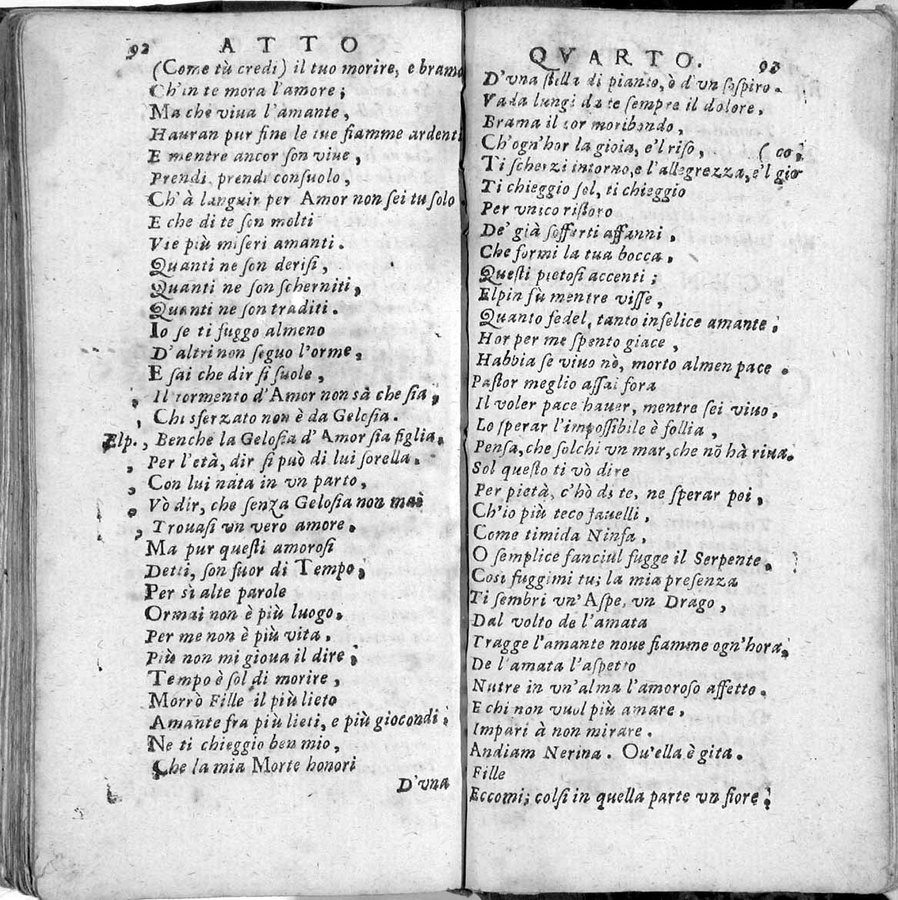 92 ATTO
(Come tù credi) il tuo morire, e brama
Ch'in te mora l'amore;
Ma che viua l'amante,
Hauran pur fine le tue fiamme ardenti
E mentre ancor son viue,
Prendi, prendi consuolo,
Ch'à languir per Amor non sei tu solo
E che di te son molti
Vie più miseri amanti.
Quanti ne son derisi,
Quanti ne son scherniti,
Quanti ne son traditi.
Io se ti fuggo almeno
D'altri non seguo l'orme,
E sai che dir si suole,
, Il tormento d'Amor non sà che sia,
, Chi sferzato non è da Gelosia.
Elp., Benche la Gelosia d'Amor sia figlia,
, Per l'età, dir si può di lui sorella.
, Con lui nata in vn parto,
, Vò dir, che senza Gelosia non mai
, Trouasi vn vero amore.
Ma pur questi amorosi
Detti, son fuor di Tempo;
Per sì alte parole
Ormai non è più luogo,
Per me non è più vita,
Più non mi gioua il dire;
Tempo è sol di morire,
Morrò Fille il più lieto
Amante fra più lieti, e più giocondi;
Ne ti chieggio ben mio,
Che la mia Morte honori
D'vna
QVARTO. 93
D'vna stilla di pianto, ò d'vn sospiro.
Vada lungi da te sempre il dolore,
Brama il cor moribondo,
Ch'ogn'hor la gioia, e'l riso, (co;
Ti scherzi intorno, e l'allegrezza, e'l gio
Ti chieggio sol, ti chieggio
Per vnico ristoro
De' già sofferti affanni,
Che formi la tua bocca,
Questi pietosi accenti;
Elpin fù mentre visse,
Quanto fedel, tanto infelice amante;
Hor per me spento giace,
Habbia se viuo nò, morto almen pace.
Pastor meglio assai fora
Il voler pace hauer, mentre sei viuo.
Lo sperar l'impossibile è follia,
Pensa, che solchi un mar, che nõ hà riua.
Sol questo ti vò dire
Per pietà, c'hò di te, ne sperar poi,
Ch'io più teco fauelli,
Come timida Ninfa,
O semplice fanciul fugge il Serpente,
Così fuggimi tu; la mia presenza
Ti sembri vn'Aspe, vn Drago,
Dal volto de l'amata
Tragge l'amante noue fiamme ogn'hora,
De l'amata l'aspetto
Nutre in vn'alma l'amoroso affetto.
E chi non vuol più amare,
Impari à non mirare.
Andiam Nerina. Ou'ella è gita.
Fille
Eccomi; colsi in quella parte vn fiore;